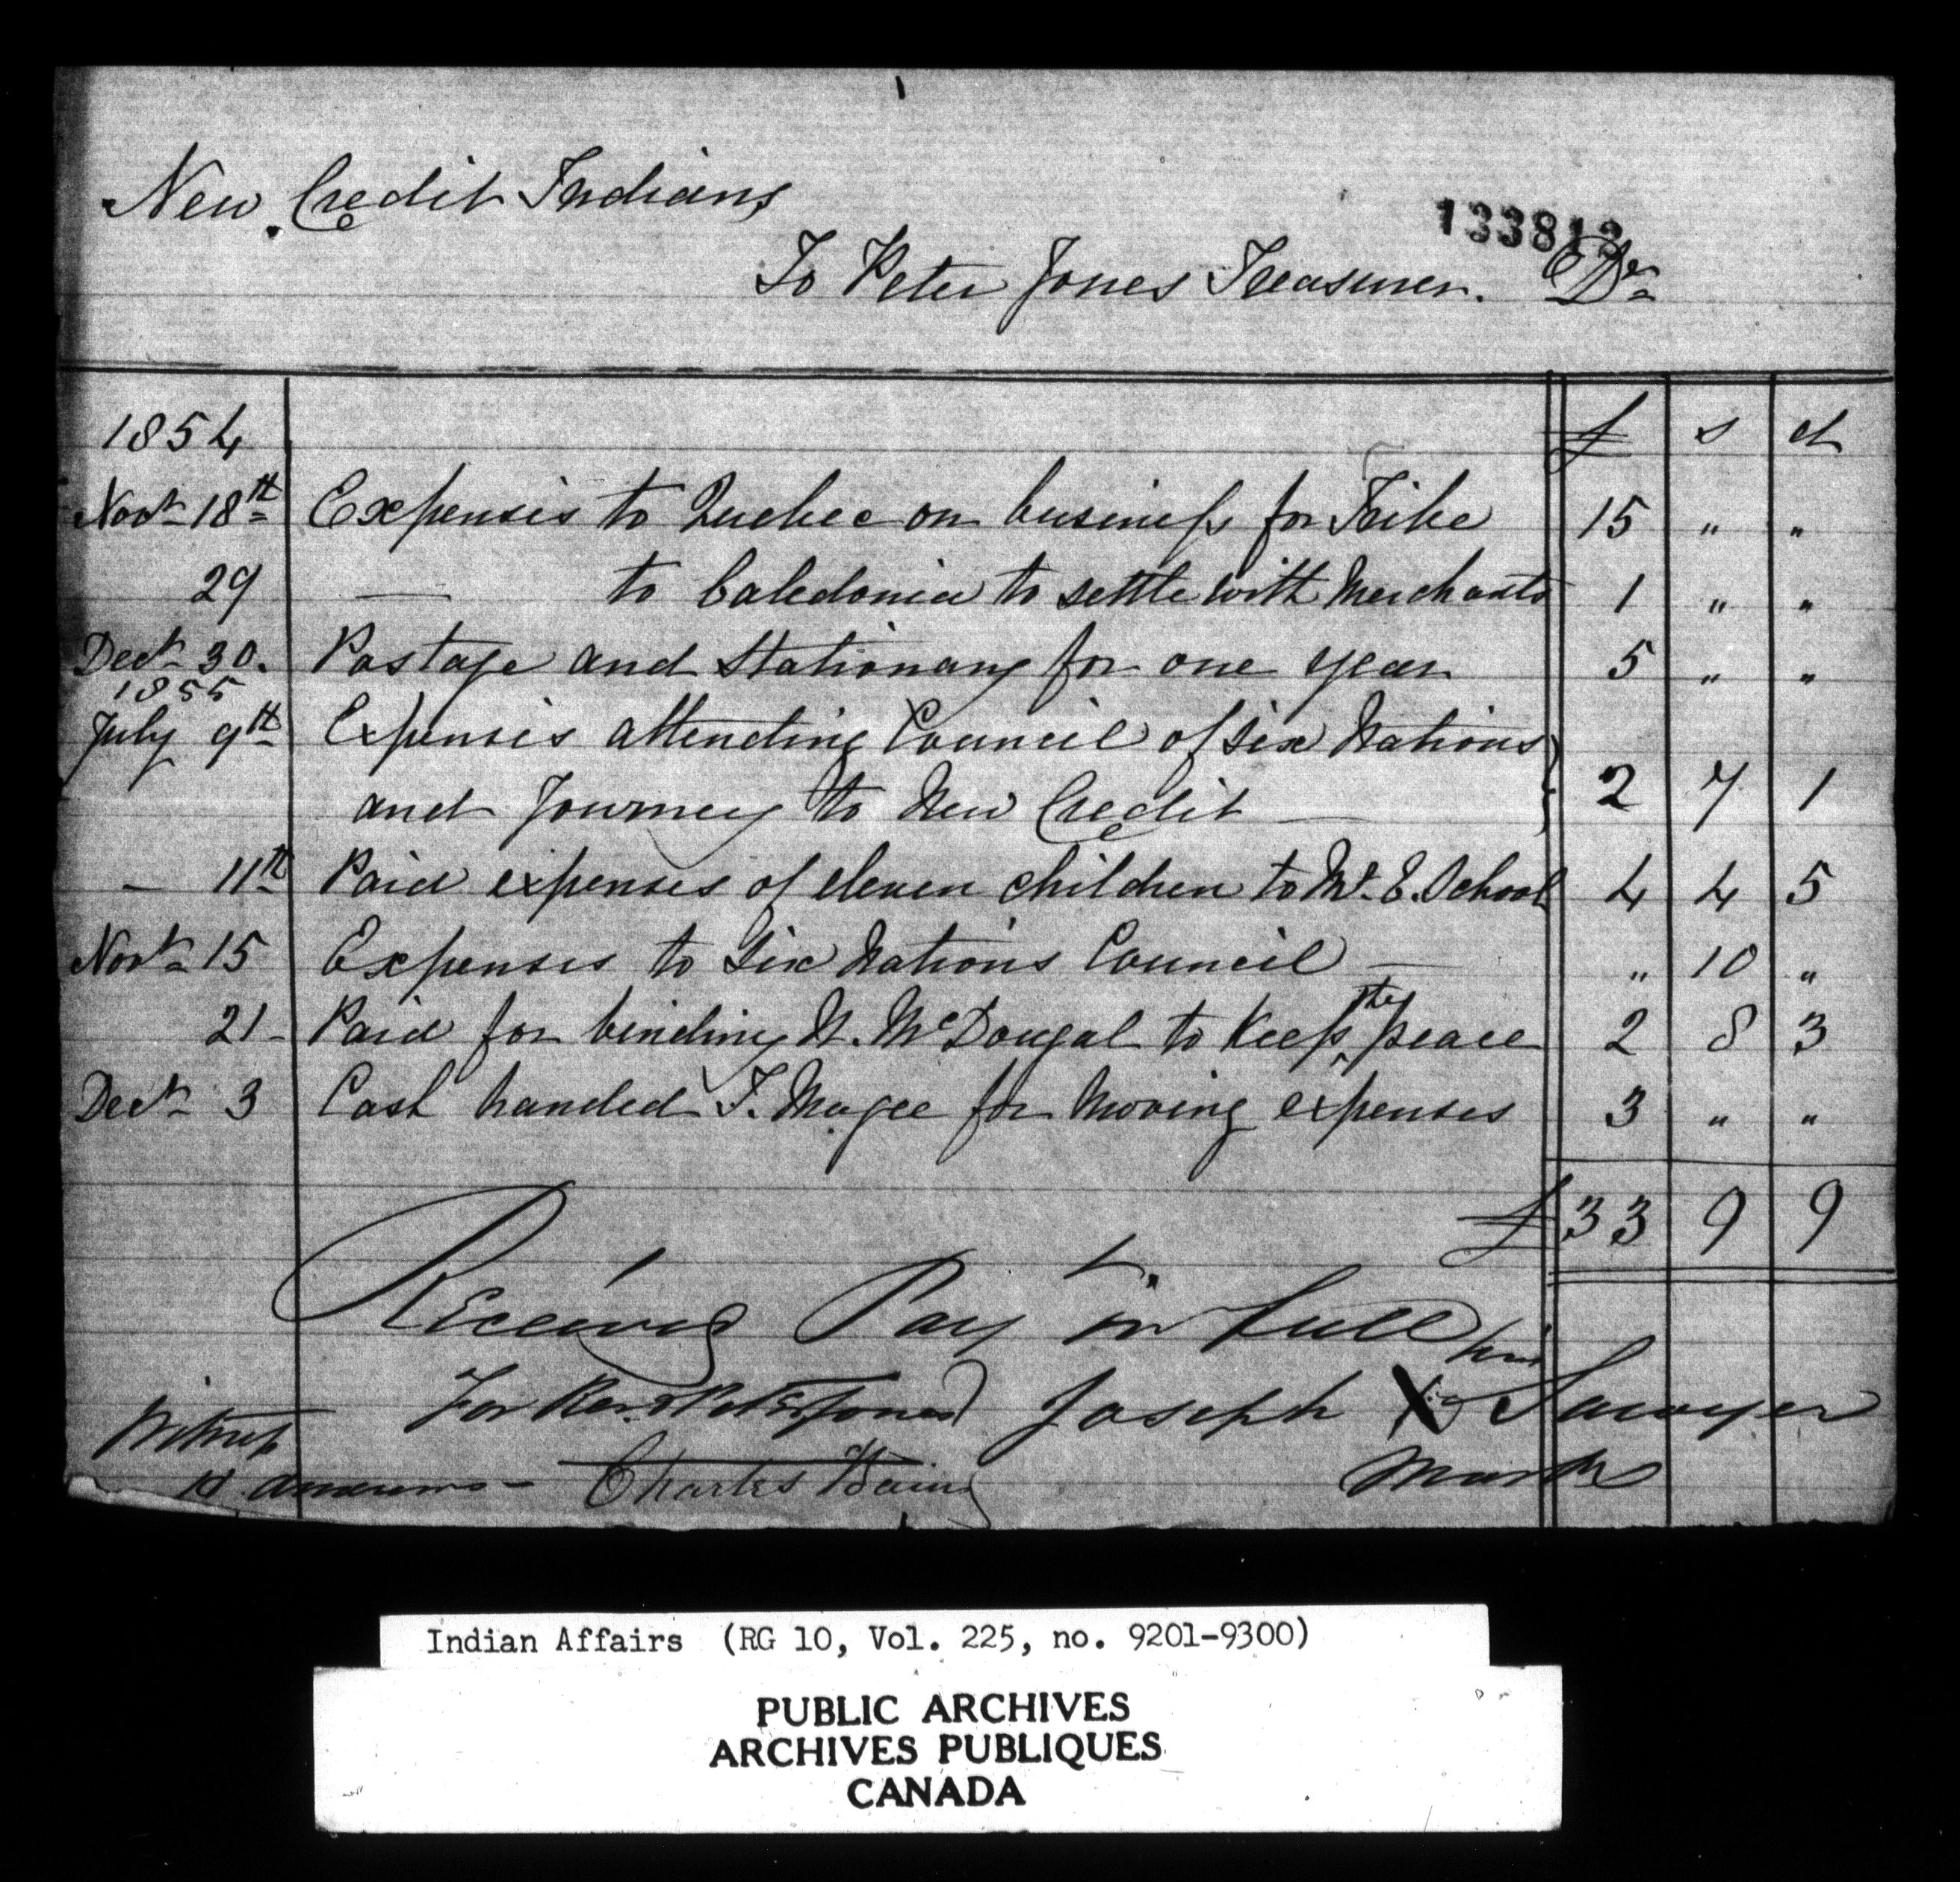 New Credit Indians
133813
To Peter Jones Treasurer. Dr
1854 £ s d
Novr 18th Expenses to Quebec on business for Tribe 15 " "
29 — to Caledonia to settle with Merchants 1 " "
Decr 30. Postage and Stationary for one year 5 " "
1855
July 9th Expenses attending Council of Six Nations
and Journey to New Credit — 2 7 1
— 11th Paid expenses of eleven children to Mt. E. School 4 4 5
Novr 15 Expenses to Six Nations Council — " 10 "
21 Paid for binding N. McDougal to Keep the peace 2 8 3
Decr 3 Cash handed T. Magee for Moving expenses 3 " "
£ 33 9 9
Received Pay in full
his
For Revd Peter Jones Joseph X Sawyer
Mark
Witness
Charles
Indian Affairs (RG 10, Vol. 225, no. 9201-9300)
PUBLIC ARCHIVES
ARCHIVES PUBLIQUES
CANADA